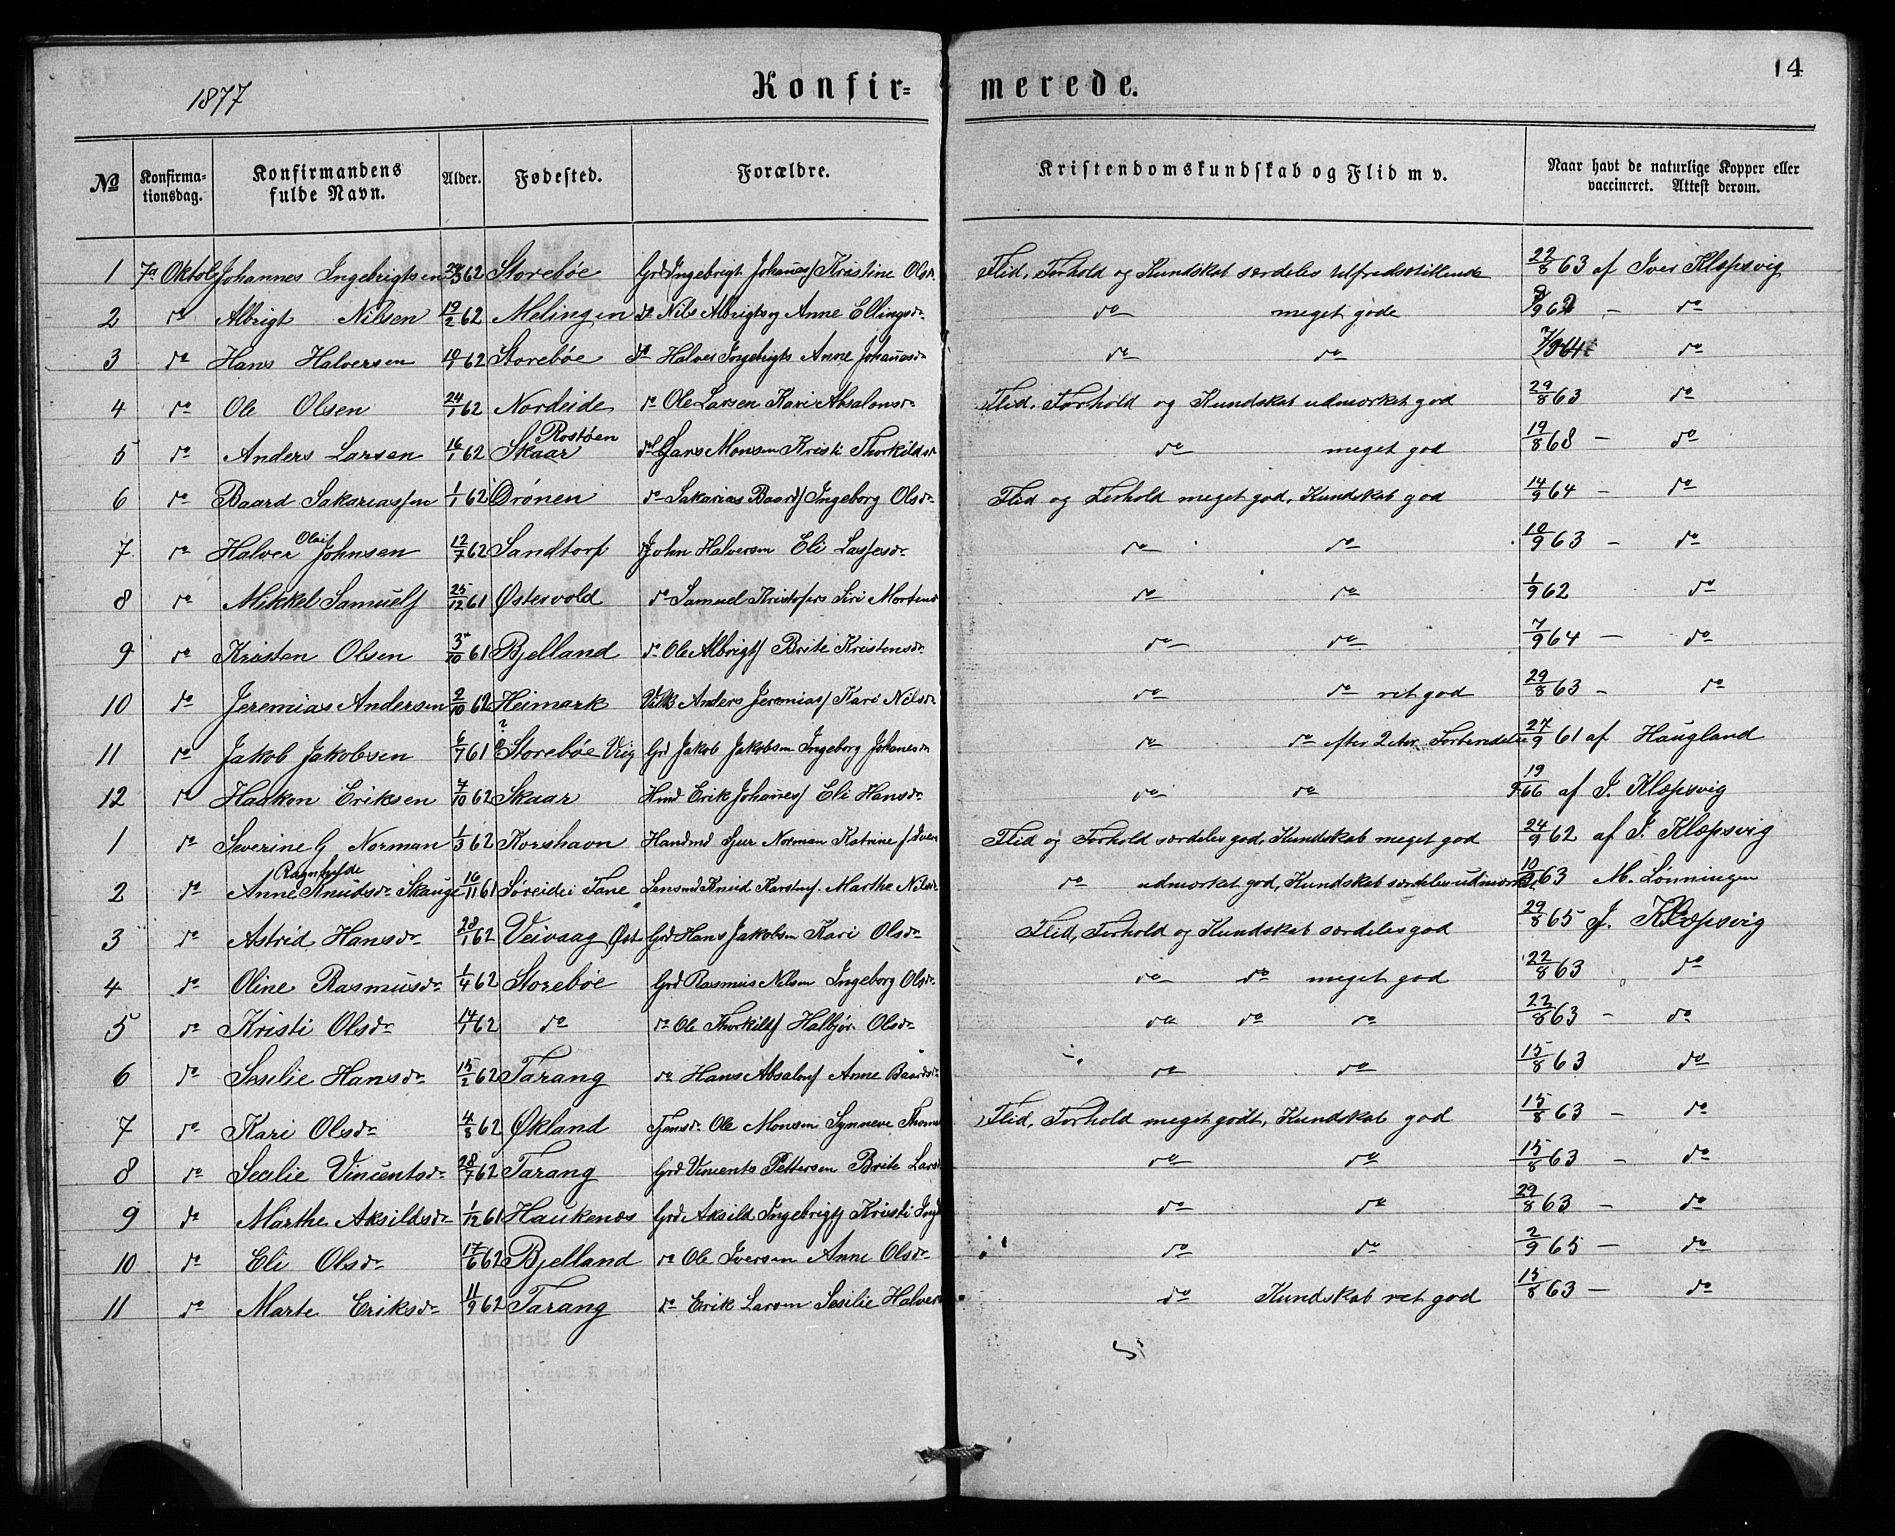 14
1877
Konfir= merede.
№ Konfirma-tionsdag. Konfirmandens fulde Navn. Alder. Fødested. Forældre. Kristendomskundskab og Flid m v. Naar havt de naturlige Kopper eller vaccineret. Attest derom.
1 7a Oktob Johannes Ingebrigtsen 62 Storebøe Grd Ingebrigt Johanes/ Kristine Olsdr Flid, Forhold og Kundskab særdeles tilfredsstillende 22/8 63 af Iver Klepsvig
2 do Albrigt Nilsen 19/2 62 Melingen do Nils Albrigts og Anne Ellingsdr do meget gode 9/9 62 - do
3 do Hans Halversen 62 Storebøe do Halver Ingebrigts Anne Johanesdr do do 64 do
4 do Ole Olsen 24/1 62 Nordeide do Ole Larsen Kari Absalonsdr Flid, Forhold og Kundskab udmærket god 29/8 63 do
5 do Anders Larsen 16/1 62 Skaar Rostøen do Lars Monsen Kristi Thorkildsdr do meget god 19/8 68 - do
6 do Baard Sakariassen 1/1 62 Drönen do Sakarias Baards/ Ingeborg Olsdr Flid og Forhold meget god, Kundskab god 14/9 64 - do
7 do Halver Olai Johnsen 12/7 62 Sandtorp do John Halversen Eli Lassesdr do do 10/9 63 - do
8 do Mikkel Samuels/ 25/12 61 Østervold do Samuel Kristofers Siri Mortensd do do 1/9 62 do
9 do Kristen Olsen 3/10 61 Bjelland do Ole Albrigts/ Brite Kristensdr do do 7/9 64 - do
10 do Jeremias Andersen 2/10 62 Heimark Anders Jeremias/ Kari Nilsdr do do ret god 29/8 63 - do
11 do Jakob Jakobsen 6/7 61 ? Storebøe Viig Grd Jakob Jakobsen Ingeborg Johanesdr do do efter 2 Aar Forberedelse 27/9 61 af Haugland
12 do Haakon Eriksen 7/10 62 Skaar Hmd Erik Johanes/ Eli Hansdr do do 19/ 66 af I. Klepsvig
1 do Severine G Norman 1/3 62 Korshavn Handmd Sjur Norman Katrine / Iven Flid og Forhold særdeles god, Kundskab meget god 24/9 62 af I. Klepsvig
2 do Anne Ragnhilde Knudsdr Skauge 16/11 61 Søreide i Fane Lensmd Knud Karstens. Marthe Nilsdr do udmærket god, Kundskab særdeles udmærket 10/ 63 M. Lønningen
3 do Astrid Hansdr 28/1 62 Veivaag Øst Grd Hans Jakobsen Kari Olsdr Flid, Forhold og Kundskab særdeles god 29/8 65 I. Klepsvig
4 do Oline Rasmusdr 1/4 62 Storebøe Grd Rasmus Nilsen Ingeborg Olsdr do do meget god 22/8 63 do
5 do Kristi Olsdr 14/1 62 do do Ole Thorkilds/ Halbjør Olsdr do do do 22/8 63 - do
6 do Sesilie Hansdr 15/2 62 Tarang do Hans Absalons/ Anne Baardsdr do do 15/8 63 do
7 do Kari Olsdr 4/8 62 Økland Ole Monsen Synneve Thom Flid, Forhold meget godt, Kundskab god 15/8 63 - do
8 do Secilie Vincentsdr 28/7 62 Tarang Grd Vincents Pettersen Brite Lars do do 15/8 63 - do
9 do Marthe Aksildsdr 1/12 61 Haukenæs Grd Aksild Ingebrigts/ Kristi Ing do do 29/8 63 - do
10 do Eli Olsdr 17/6 62 Bjelland do Ole Iversen Anne Olsdr do do 2/9 65 - do
11 do Marte Eriksdr 11/9 62 Tarang do Erik Larsen Sesilie Halver do Kundskab ret god 15/8 63 - do